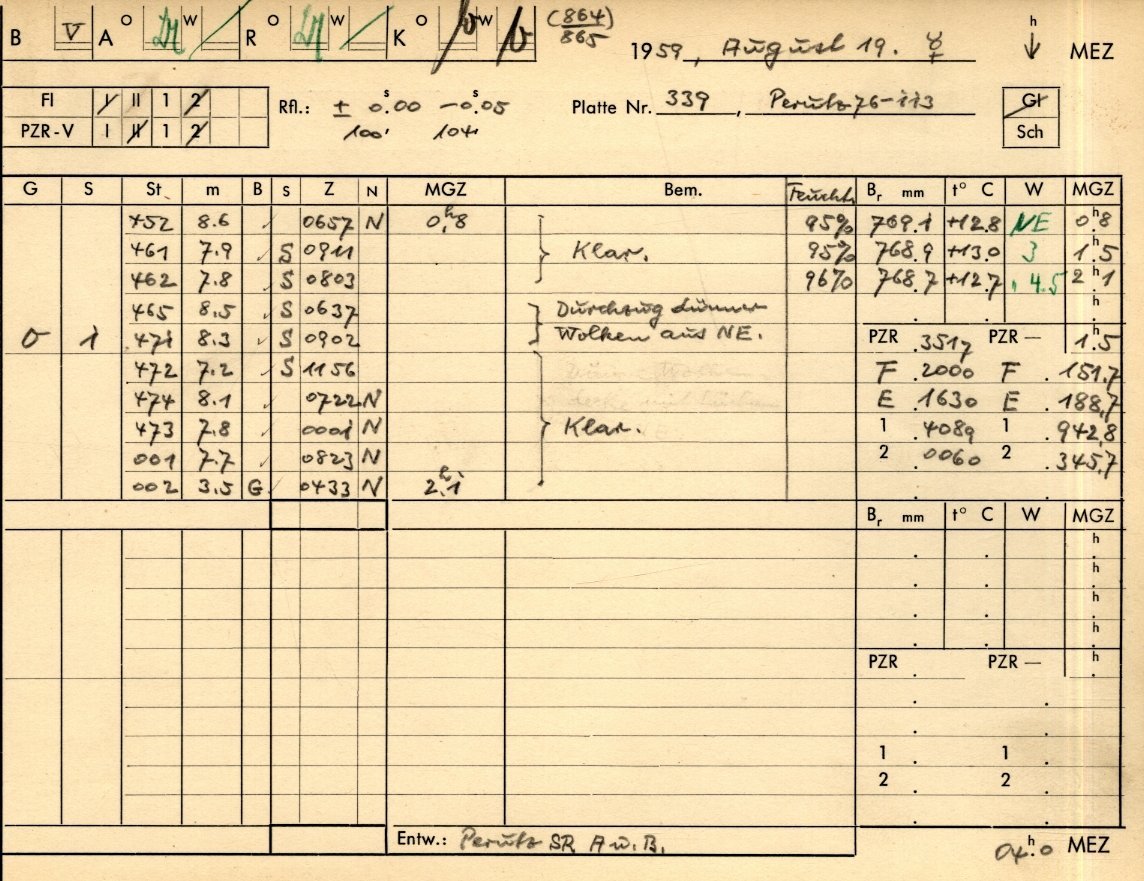 B V A O W R O W K O W (864/865) 1959, August 19. ☿ h ↓ MEZ
Fl I II 1 2 Rfl.: ± 0.00 s −0.05 s Platte Nr. 339, Perutz 76-113 Gl
PZR-V I II 1 2 Sch
G S St m B S Z N MGZ Bem. Feucht. Br mm t° C W MGZ
452 8.6 ✓ 0657 N 0h,8 95% 769.1 +12.8 NE 0h.8
461 7.9 ✓ S 0911 Klar. 95% 768.9 +13.0 3 1h.5
462 7.8 ✓ S 0803 96% 768.7 +12.7 4.5 2h.1
465 8.5 ✓ S 0637 Durchzug dünner . . h
0 1 471 8.3 ✓ S 0902 Wolken aus NE. PZR .3517 PZR — 1h.5
472 7.2 ✓ S 1156 F .2000 F .151,7
474 8.1 ✓ 0722 N E .1630 E .188,7
473 7.8 ✓ 0001 N Klar. 1 .4089 1 .942,8
001 7.7 ✓ 0823 N 2 .0060 2 .345,7
002 3.5 G ✓ 0433 N 2h,1
Br mm t° C W MGZ
h
h
h
h
PZR PZR — h
1 1
2 2
Entw.: Perutz SR A u. B. 04h.0 MEZ